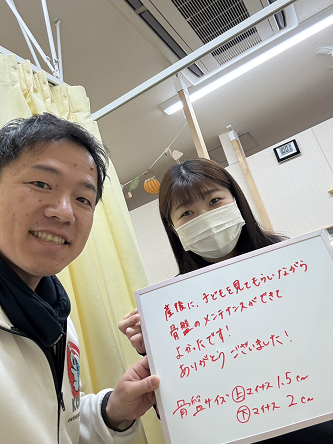 産後に、子どもを見てもらいながら
骨盤のメンテナンスができて
よかったです!
ありがとうございました!
骨盤サイズ 上 マイナス 1.5cm
下 マイナス 2cm